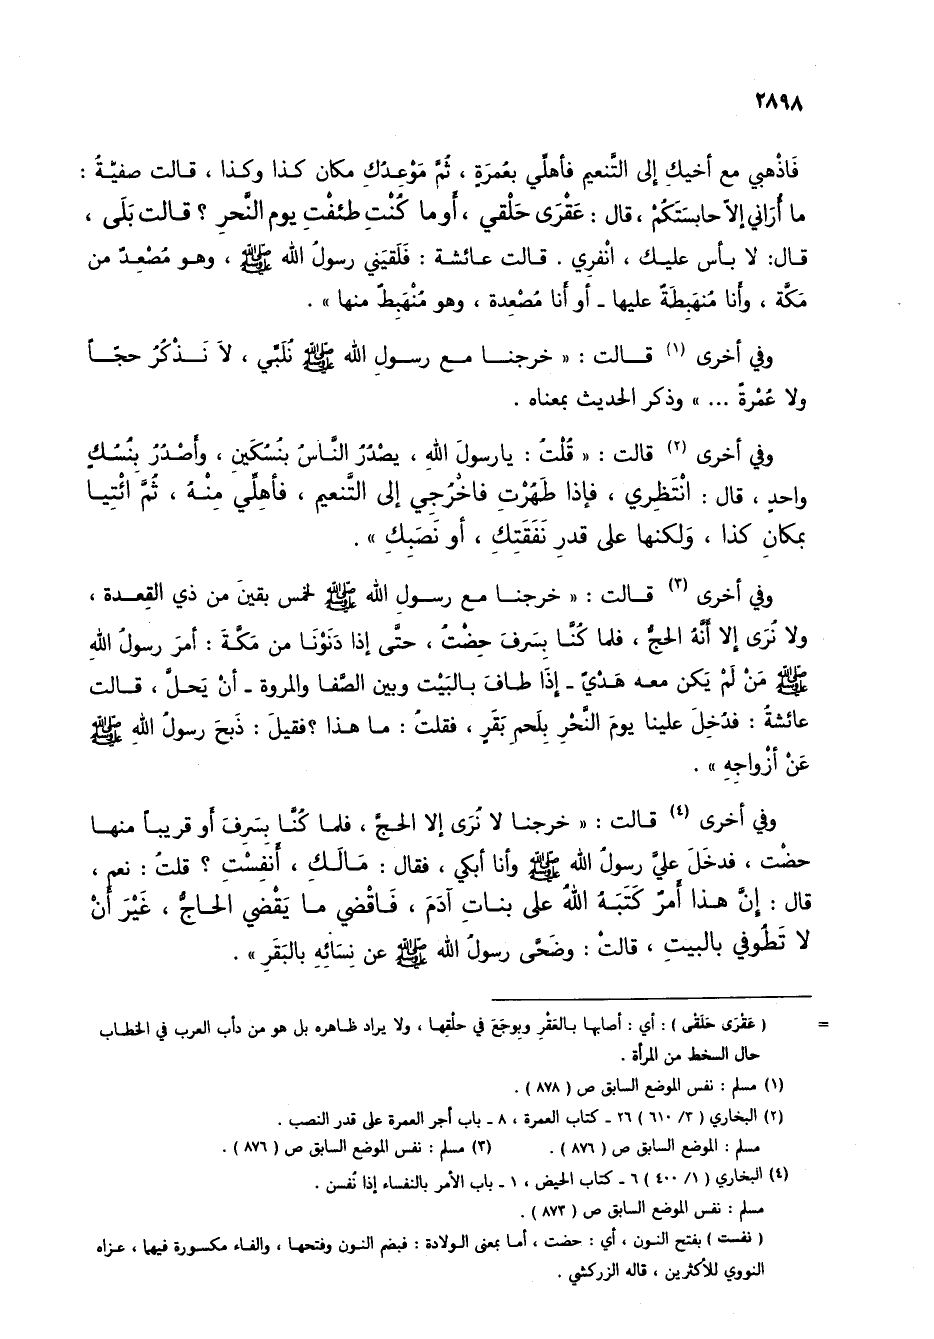 ٢٨٩٨
فَاذْهبي مع أخيكِ إلى التَّنعيم فأهلِّي بعُمرَةٍ ، ثُمَّ مَوْعِدُكِ مكان كذا وكذا ، قالت صفيّةُ :
ما أُرَاني إلاّ حابستَكُمْ ، قال : عَقْرَى حَلْقي ، أَوما كُنْتِ طئفْتِ يوم النَّحرِ ؟ قالت بَلَى ،
قال: لا بأس عليك ، انْفري . قالت عائشة : فَلَقيَني رسولُ الله ﷺ ، وهو مُصْعِدٌ من
مَكَّة ، وأَنا مُنهَبِطَةٌ عليها ـ أو أَنا مُصْعدة ، وهو مُنْهَبِطٌ منها » .
وفي أخرى (١) قالت : « خرجنا مع رسولِ الله ﷺ نُلَبِّي ، لاَ نَذْكُرُ حجّاً
ولا عُمْرةً ... » وذكر الحديث بمعناه .
وفي أخرى (٢) قالت : « قُلْتُ : يارسولَ الله ، يصْدُرُ النَّاسُ بنُسُكَينِ ، وأَصْدُرُ بِنُسُكٍ
واحدٍ ، قال : انْتَظِري ، فإذا طَهُرْتِ فاخْرُجي إلى التَّنعيم ، فأهلِّي مِنْهُ ، ثُمَّ ائْتِيا
بمكانِ كذا ، وَلكنها على قدرِ نَفَقَتِكِ ، أو نَصَبِكِ » .
وفي أخرى (٣) قالت : « خرجنا مع رسولِ الله ﷺ لخمس بقينَ من ذي القِعدة ،
ولا نُرَى إلا أنَّهُ الحجُّ ، فلما كُنَّا بسَرِفَ حِضْتُ ، حتَّى إذا دَنَوْنَا من مَكَّةَ : أمرَ رسولُ الله
ﷺ مَنْ لَمْ يَكن معه هَدْيٌ ـ إذَا طافَ بالبَيْت وبين الصَّفا والمروة ـ أنْ يَحلَّ ، قالت
عائشةُ : فدُخِلَ علينا يومَ النَّحْرِ بلَحمِ بَقَرٍ ، فقلتُ : ما هذا ؟فقيلَ : ذَبحَ رسولُ اللهِ ﷺ
عَنْ أزْواجِهِ » .
وفي أخرى (٤) قالت : « خرجنا لا نُرَى إلا الحجَّ ، فلما كُنَّا بسَرِفَ أو قريباً منها
حضْت ، فدخَلَ عليَّ رسولُ الله ﷺ وأنا أبكي ، فقال : مَالَكِ ، أَنفِسْتِ ؟ قلتُ : نعم ،
قال : إنَّ هذا أَمرٌ كَتَبَهُ اللهُ على بناتِ آدَمَ ، فَاقْضي ما يَقْضي الحاجُّ ، غَيْرَ أَنْ
لا تَطُوفي بالبيتِ ، قالتْ : وضَحَّى رسولُ الله ﷺ عن نِسَائِهِ بالبَقَرِ » .
= ( عَقْرَى حَلْقَى ) : أي : أصابها بالعَقْرِ وبوجَعَ في حلْقِها ، ولا يراد ظاهره بل هو من دأب العرب في الخطاب
حال السخط من المرأة .
(١) مسلم : نفس الموضع السابق ص ( ٨٧٨ ) .
(٢) البخاري ( ٣/ ٦١٠ ) ٢٦ ـ كتاب العمرة ، ٨ ـ باب أجر العمرة على قدر النصب .
مسلم : الموضع السابق ص ( ٨٧٦ ) . (٣) مسلم : نفس الموضع السابق ص ( ٨٧٦ ) .
(٤) البخاري ( ١/ ٤٠٠ ) ٦ ـ كتاب الحيض ، ١ ـ باب الأمر بالنفساء إذا نُفسن .
مسلم : نفس الموضع السابق ص ( ٨٧٣ ) .
( نفست ) بفتح النون ، أي : حضت ، أما بمعنى الولادة : فبضم النون وفتحها ، والفاء مكسورة فيها ، عزاه
النووي للأكثرين ، قاله الزركشي .